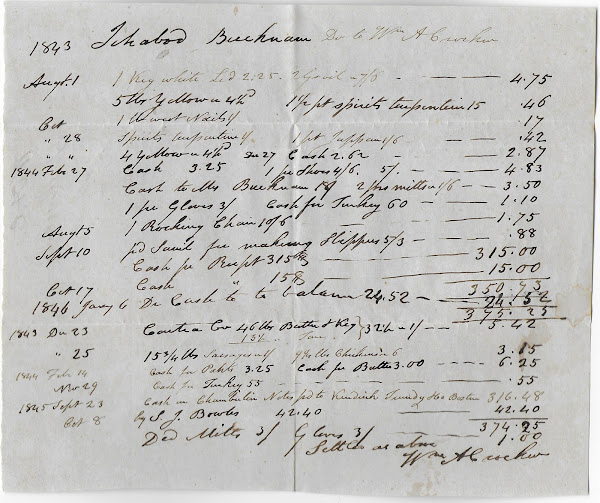 1843 Ichabod Bucknam Dr to Wm A Crocker
Augt. 1 1 Keg white L'd 2.25 2 Gs oil 7/6 4.75
5 lbs Yellow 4½d 1½ pt spirits turpentine 15 .46
Oct 1 lb wrot Nails 1/ .17
" 28 Spirits turpentine 1 pt Jappan 1/6 .42
" " 4 Yellow 4½d 27 Cash 2.62 2.87
1844 Feb 27 Cash 3.25 1 pr Shoes 4/6 5/. 4.83
Cash to Mrs Bucknam 2 prs mittens 1/6 3.50
1 pr Gloves 3/ Cash for Turkey 60 1.10
Augt 5 1 Rocking Chair 10/6 1.75
Sept 10 p'd Saml for making Slippers 5/3 .88
Cash per Recpt 315 315.00
Oct 17 Cash " 15 15.00
350.73
1846 Jany 6 Dr Cash to balance 24.52 24.52
375.25
1843 Dec 23 Contra Cr 46 lbs Butter & Keg 32½ 1/ 5.42
" 25 15 3/4 lbs Sausages 9½ lbs Chickens 6 3.15
1844 Feb 14 Cash for 3.25 Cash for Butter 3.00 6.25
Nov 29 Cash for Turkey 55 .55
1845 Sept 23 Cash on Chamberlin Notes pd to Kendrick Boston 316.48
Oct 8 by S. J. Bowles 42.40 42.40
374.25
Ded Mitts 3/ Gloves 3/ 1.00
Settled as above
Wm A Crocker